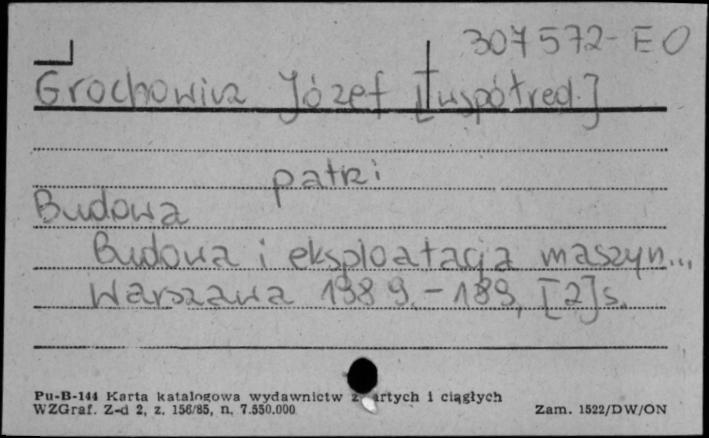 307572-EO
Grochowicz Józef [współred.]
patrz
Budowa
Budowa i eksploatacja maszyn...
Warszawa 1989. – 189, [2] s.
Pu-B-144 Karta katalogowa wydawnictw zwartych i ciągłych
WZGraf. Z-d 2, z. 156/85, n. 7.550.000
Zam. 1522/DW/ON